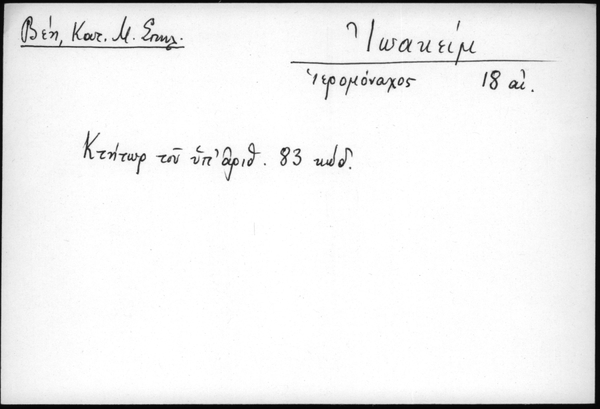 Βέη, Κατ. Μ. Σπηλ.
Ἰωακείμ
Ἱερομόναχος 18 αἰ.
Κτήτωρ τοῦ ὑπ' ἀριθ. 83 κώδ.